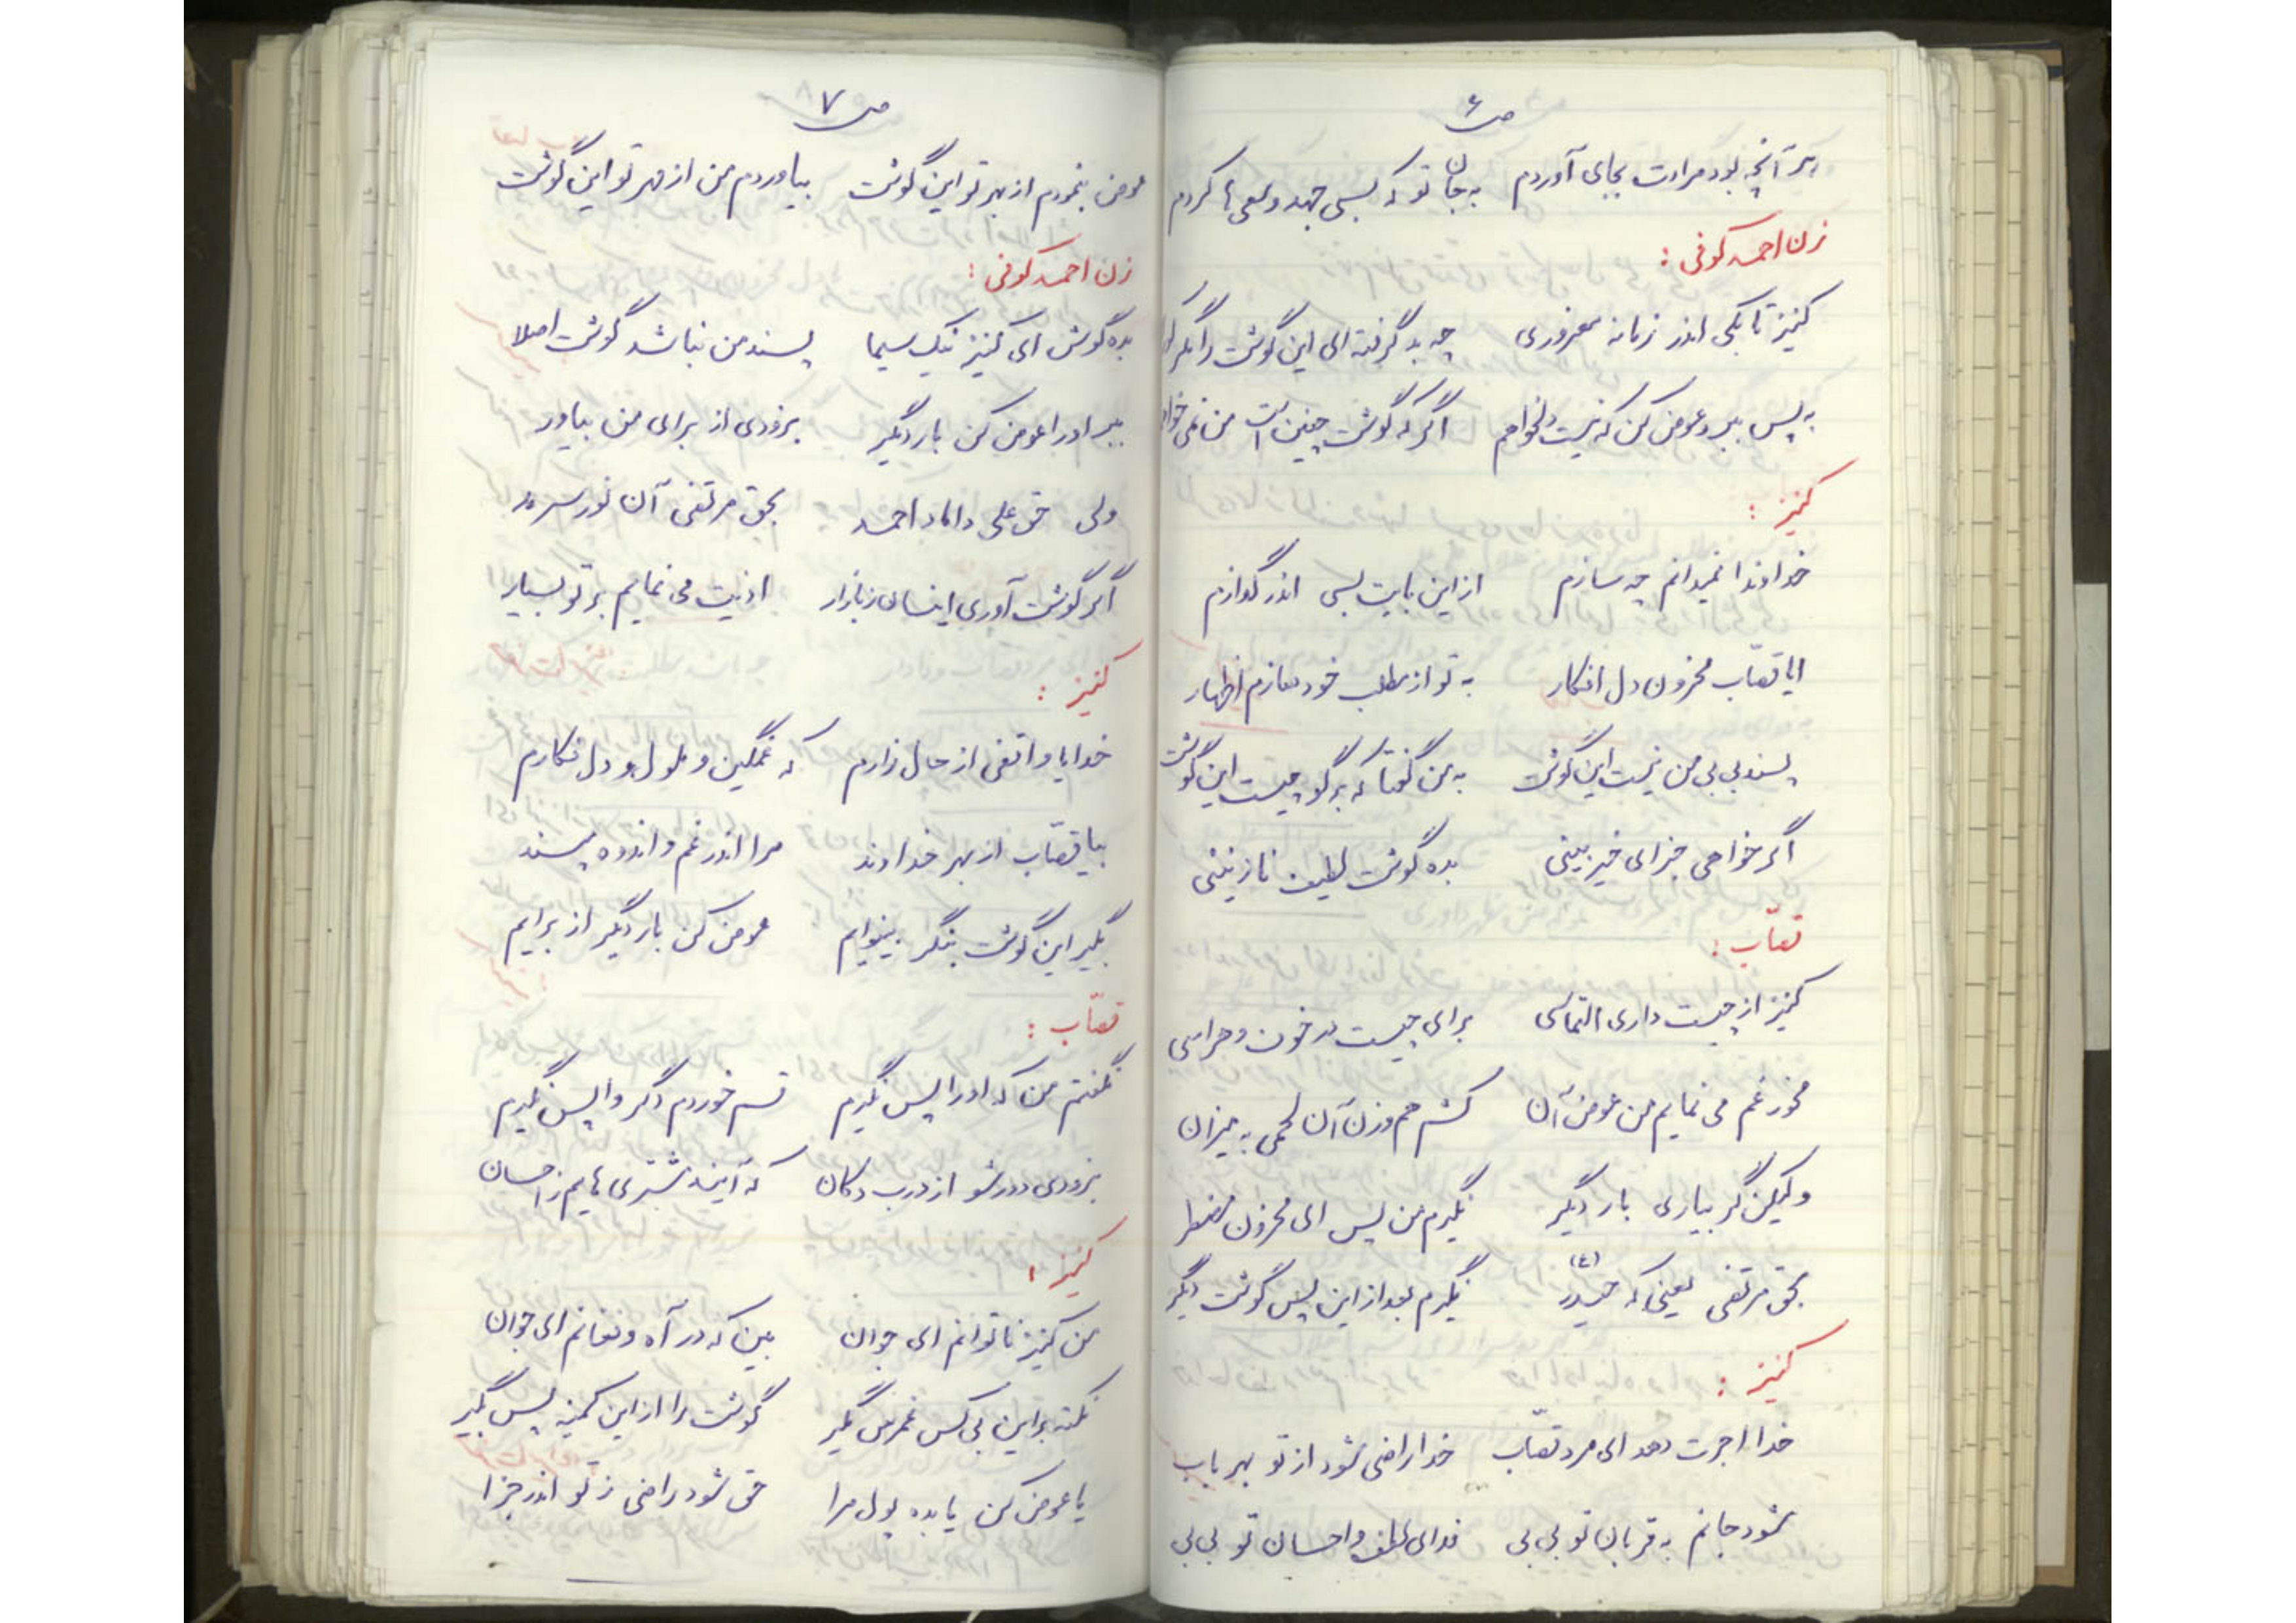 ص ۶
هر آنچه بود مرادت بجای آوردم به جان تو که بسی جهد و سعی ها کردم
زن احمد کوفی :
کنیز تا بکی اندر زمانه مغروری چه بد گرفته ای این گوشت را مگر
به پس ببر و عوض کن که نیست دلخواهم اگر که گوشت چنین است من نمی خواهم
کنیز :
خداوندا نمیدانم چه سازم از این بابت بسی اندر گدازم
ایا قصّاب محزون دل افکار به تو از مطلب خود سازم اظهار
پسند بی بی من نیست این گوشت به من گفتا که برگو چیست این گوشت
اگر خواهی جزای خیر بینی بده گوشت لطیف نازنینی
قصّاب :
کنیز از چیست داری التماسی برای چیست در خوف و هراسی
مخور غم می نمایم من عوض آن کشم هم وزن آن لحمی به میزان
ولیکن گر بیاری بار دیگر نگیرم من پس ای محزون مضطر
بحق مرتضی یعنی که حیدر (ع) نگیرم بعد از این پس گوشت دیگر
کنیز :
خدا اجرت دهد ای مرد قصّاب خدا راضی شود از تو بهر باب
شود جانم به قربان تو بی بی فدای لطف و احسان تو بی بی
ص ۷
عوض بنمودم از بهر تو این گوشت بیاوردم من از مهر تو این گوشت
زن احمد کوفی :
بده گوش ای کنیز نیک سیما پسند من نباشد گوشت اصلا
ببر او را عوض کن بار دیگر بزودی از برای من بیاور
ولی حق علی داماد احمد بحق مرتضی آن نور سرمد
اگر گوشت آوری اینسان ز بازار اذیت می نمایم بر تو بسیار
کنیز :
خدایا واقفی از حال زارم که غمگین و ملول و دل فکارم
بیا قصّاب از بهر خداوند مرا اندر غم و اندوه مپسند
بگیر این گوشت بنگر بینوایم عوض کن بار دیگر از برایم
قصّاب :
نگفتم من که او را پس نگیرم قسم خوردم دگر واپس نگیرم
بزودی دور شو از درب دکان که آیند مشتری هایم ز احسان
کنیز :
من کنیز ناتوانم ای جوان بین که در آه و فغانم ای جوان
نکته بر این بی کس غمرس مگیر گوشت را از این کمینه پس بگیر
یا عوض کن یا بده پول مرا حق شود راضی ز تو اندر جزا